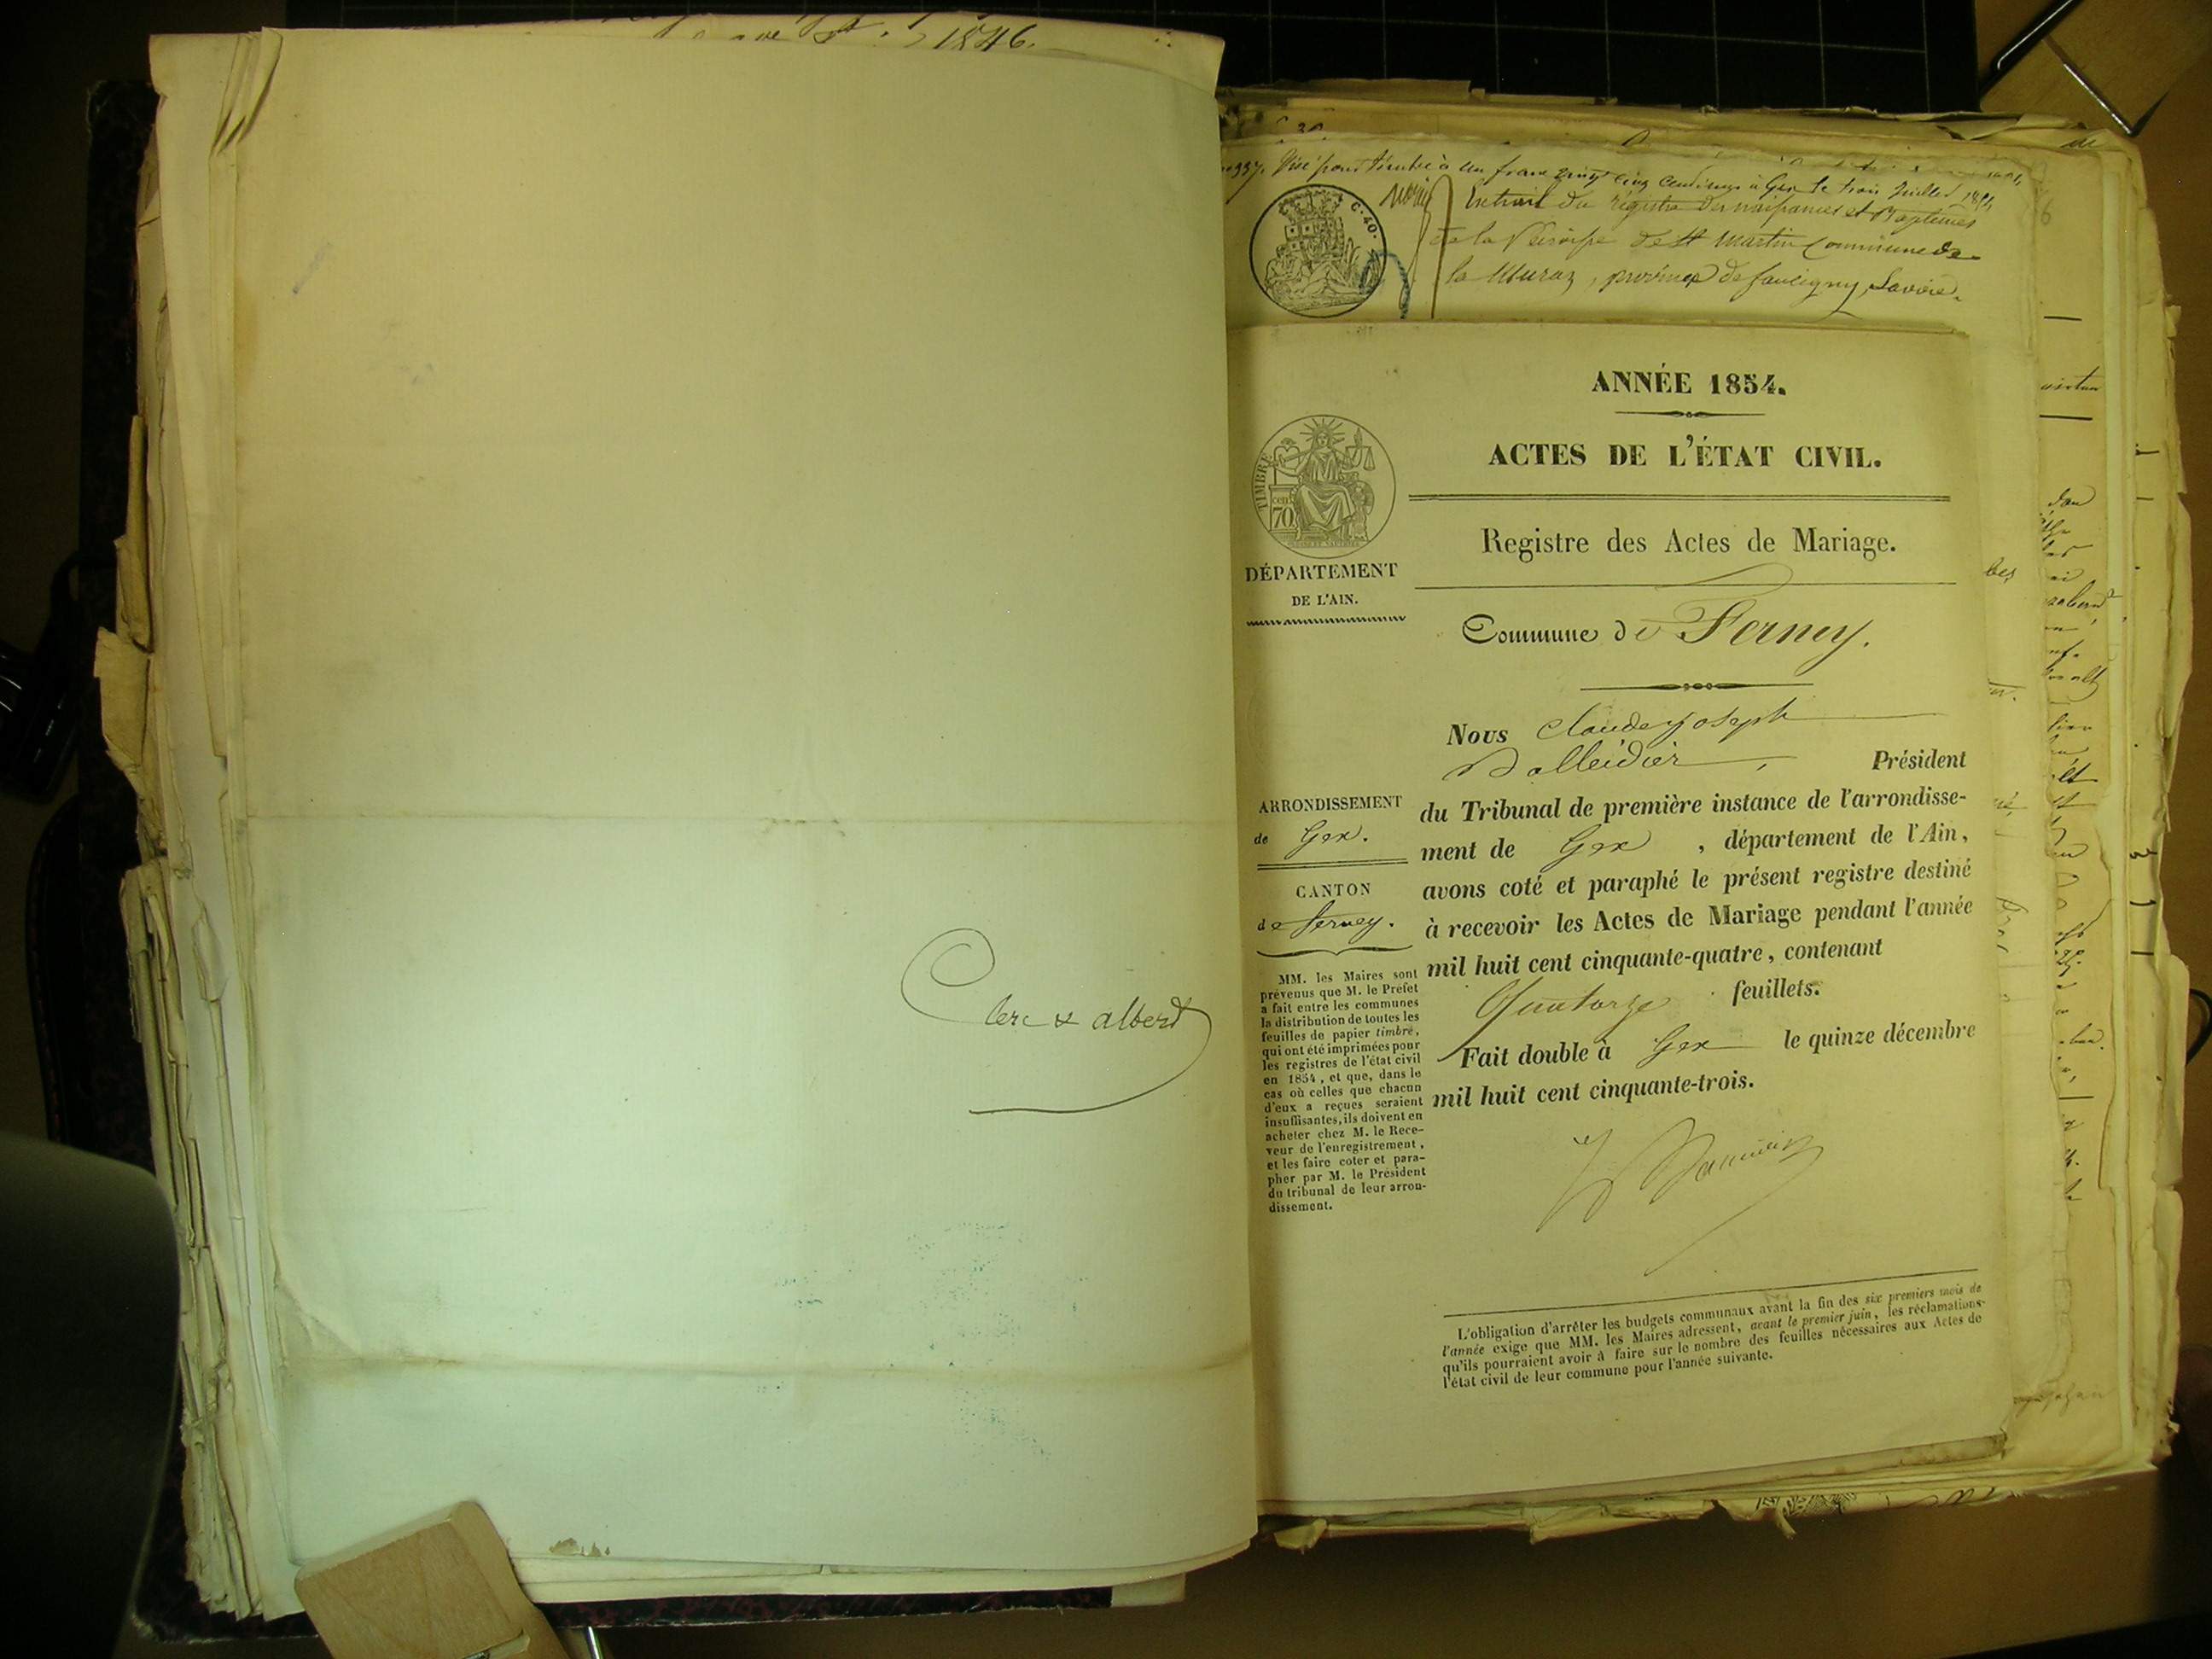 1846.
Clerc & albert
Visé pour timbre à un franc vingt cinq centimes à Gex le trois juillet
C. 40.
Extrait du régistre des naissances et Baptêmes
de la Paroisse de St Martin commune de
la Muraz, province de faucigny, Savoie.
ANNÉE 1854.
ACTES DE L'ÉTAT CIVIL.
TIMBRE
cent
70
Registre des Actes de Mariage.
DÉPARTEMENT
DE L'AIN.
Commune de Ferney.
Nous Claude Joseph
Président
du Tribunal de première instance de l'arrondisse-
ment de Gex , département de l'Ain,
avons coté et paraphé le présent registre destiné
à recevoir les Actes de Mariage pendant l'année
mil huit cent cinquante-quatre, contenant
Quatorze feuillets.
Fait double à Gex le quinze décembre
mil huit cent cinquante-trois.
ARRONDISSEMENT
de Gex.
CANTON
de Ferney.
MM. les Maires sont
prévenus que M. le Préfet
a fait entre les communes
la distribution de toutes les
feuilles de papier timbré,
qui ont été imprimées pour
les registres de l'état civil
en 1854, et que, dans le
cas où celles que chacun
d'eux a reçues seraient
insuffisantes, ils doivent en
acheter chez M. le Rece-
veur de l'enregistrement,
et les faire coter et para-
pher par M. le Président
du tribunal de leur arron-
dissement.
L'obligation d'arrêter les budgets communaux avant la fin des six premiers mois de
l'année exige que MM. les Maires adressent, avant le premier juin, les réclamations
qu'ils pourraient avoir à faire sur le nombre des feuilles nécessaires aux Actes de
l'état civil de leur commune pour l'année suivante.